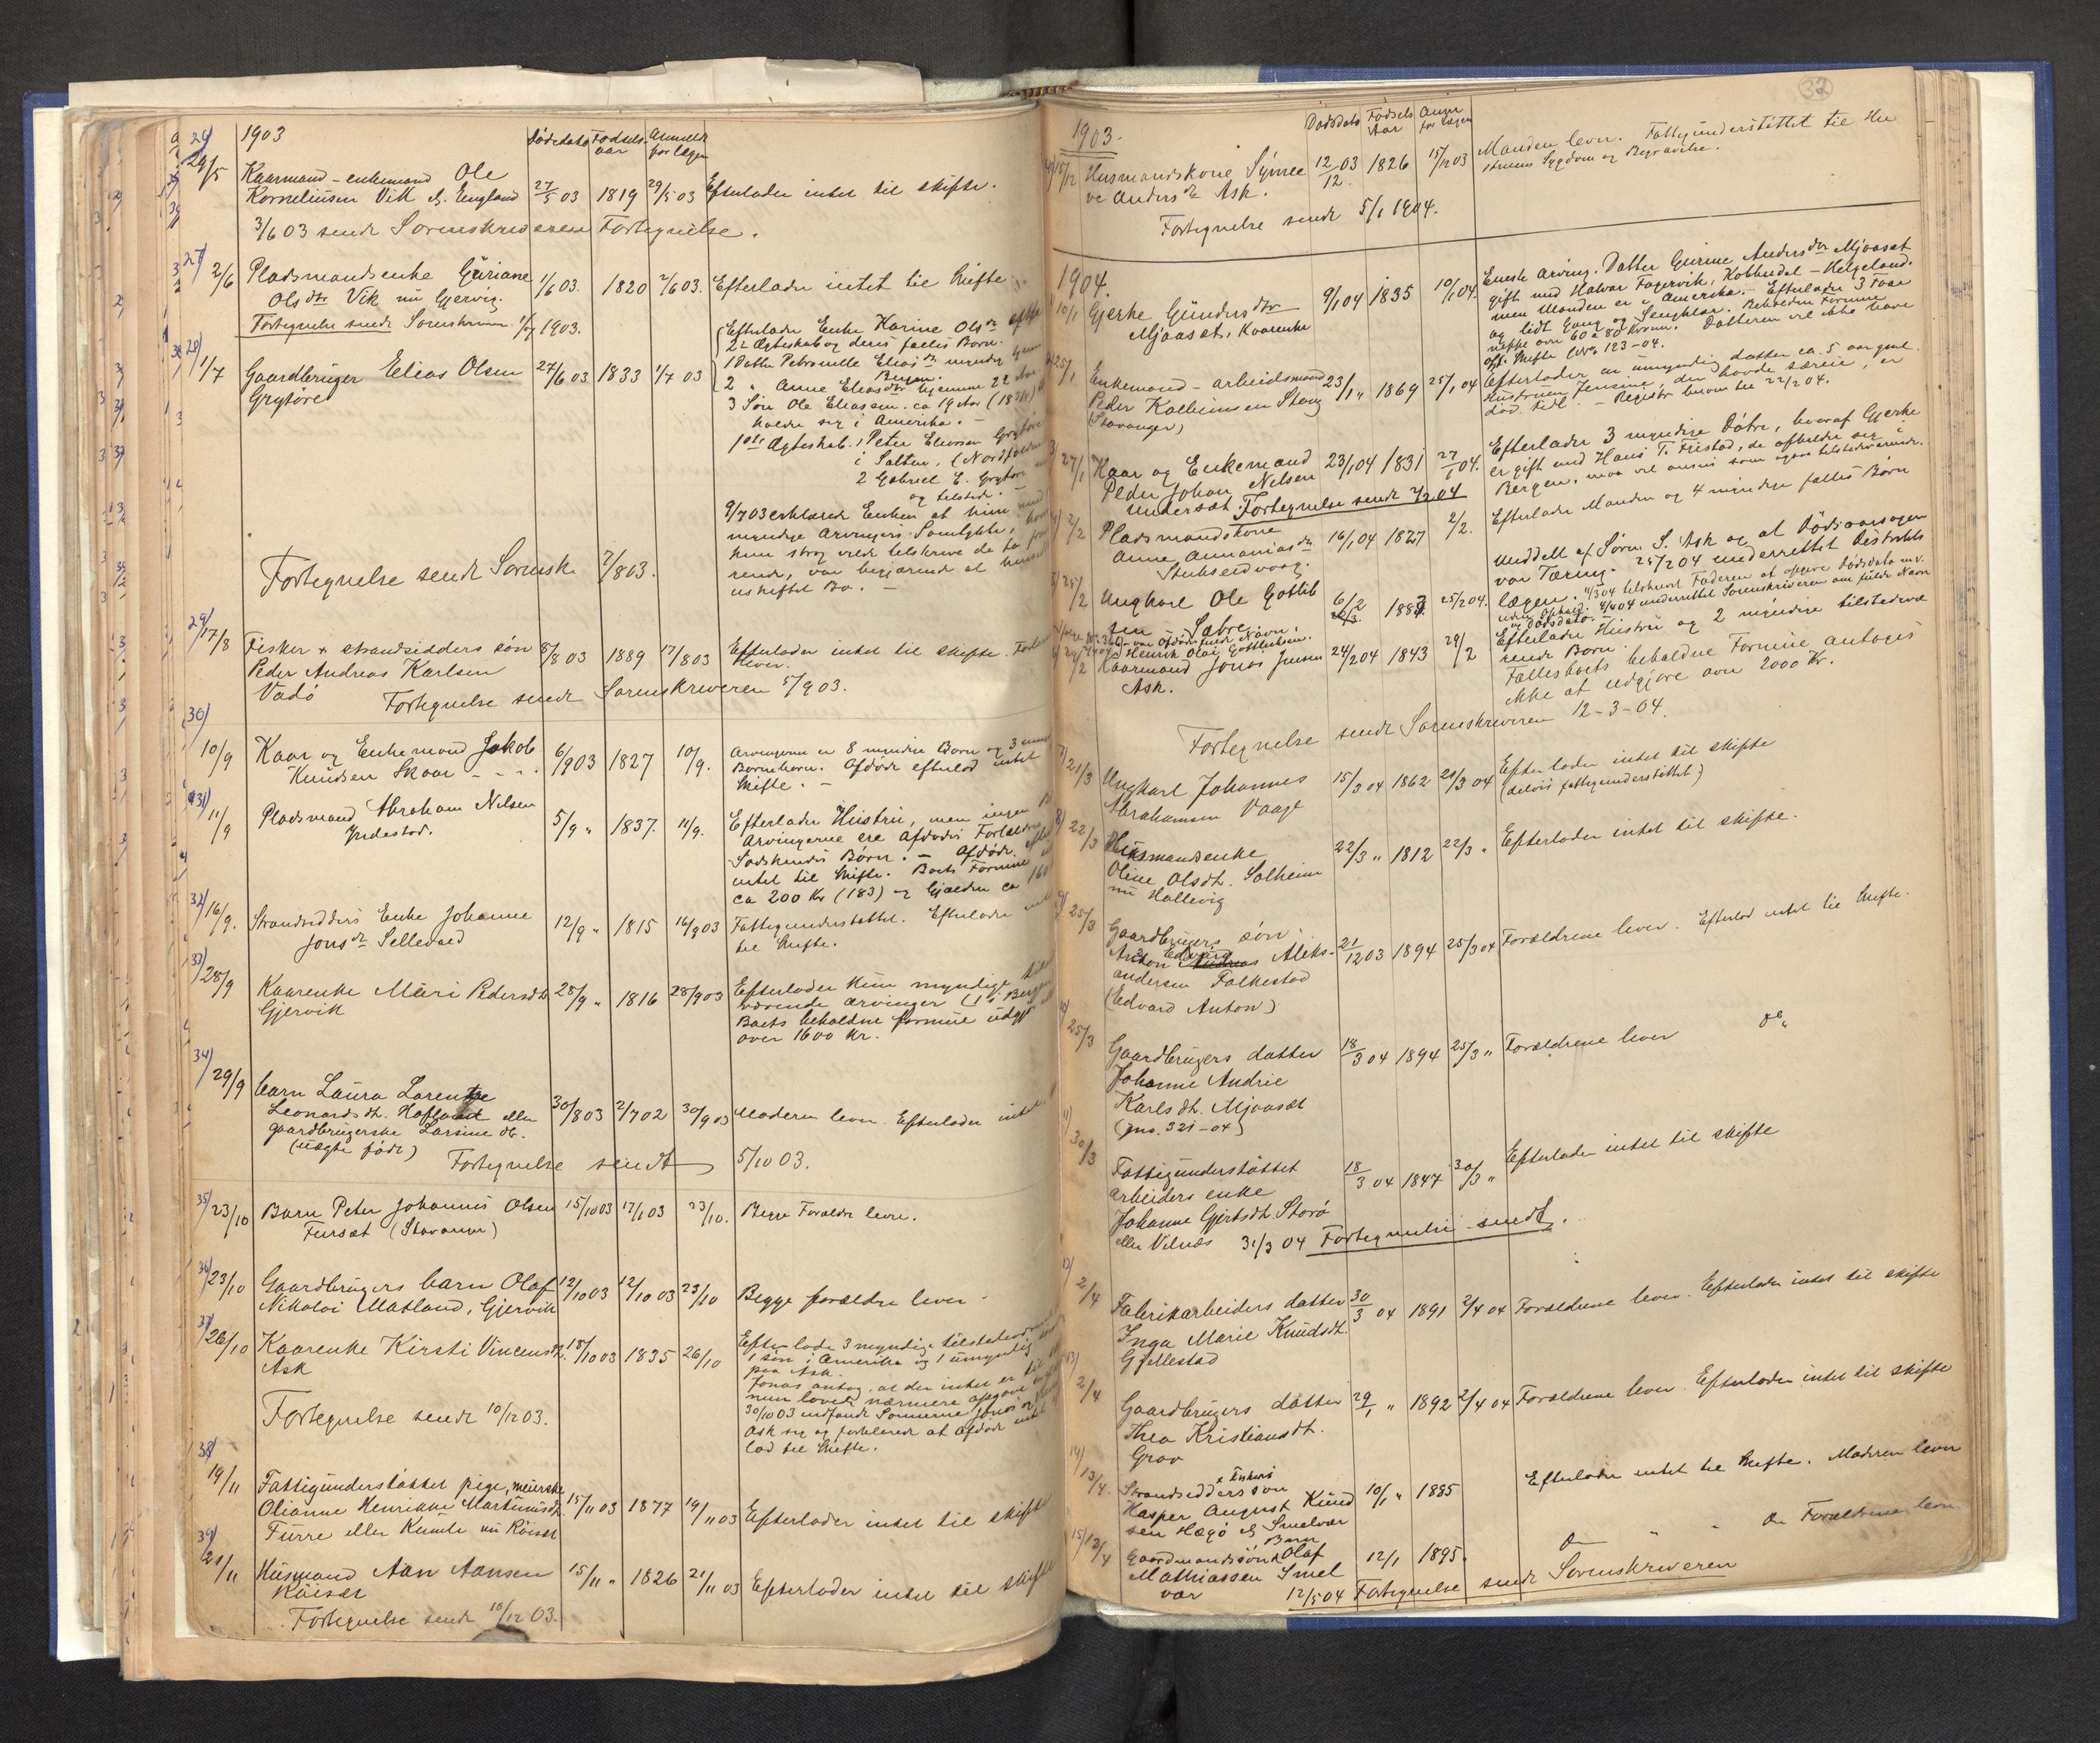 1903
Dødsdato Fødselsaar Anmeldt for lægen
29/5 Kaarmand - enkemand Ole
Korneliusen Vik af England 27/5 03 1819 29/5 03 Efterlader intet til skifte.
3/6 03 sendt Sorenskriveren Fortegnelse.
27/ 2/6 Pladsmandsenke Guriane 1/6 03. 1820 2/6 03. Efterlader intet til skifte
Olsdtr Vik nu Gjervig.
Fortegnelse sendt Sorenskriveren 1/7 1903.
28/ 1/7 Gaardbruger Elias Olsen 27/6 03 1833 1/7 03
Grytøre
Efterlader Enke Karine Olsdr
2det Ægteskab og deres fælles Børn.
1 Datter Petronelle Eliasdr myndig
Bergen.
2 " Anne Eliasdtr hjemme 22 Aar
3 Søn Ole Eliassen. ca 19 Aar
holder sig i Amerika. -
1ste Ægteskab. 1 Peter Eliassen Grytøre
i Salten. (Nordfolden
2 Gabriel E. Grytøre
og tilstede. -
9/7 03 erklærede Enken at hun med
myndige Arvingers Samtykke,
hun strax vilde tilskrive de to
rende, var begjærende at
uskiftet Bo. -
Fortegnelse sendt Sorensk 7/8 03.
29/ 17/8 Fisker + strandsidders søn 8/8 03 1889 17/8 03 Efterlader intet til skifte.
Peder Andreas Karlsen lever.
Vadø Fortegnelse sendt Sorenskriveren 5/9 03.
30/
10/9 Kaar og Enkemand Jakob 6/9 03 1827 10/9. Arvingerne er 8 myndige Børn og 3
Knudsen Skaar - - - . Børnebørn. Afdøde efterlod intet
skifte. -
31/ 11/9 Pladsmand Abraham Nilsen 5/9 " 1837. 11/9. Efterlader Hustru, men ingen
Yndestad. Arvingerne ere Afdødes Forældre
Sødskendes Børn. - Afdøde
intet til skifte. Boets Formue
ca 200 Kr (183) og Gjælden ca 160
32/ 16/9. Strandsidders Enke Johanne 12/9 " 1815 16/9 03 Fattigunderstøttet. Efterlader
Jonsdr Sellevold til skifte.
33/ 28/9 Kaarenke Mari Pedersdt 28/9 " 1816 28/9 03 Efterlader kun myndige
Gjervik værende arvinger (1 i Bergen
Boets beholdne formue udgjør
over 1600 Kr.
34/
29/9 barn Laura Lorentse
Leonardsdt. Hofland eller 30/8 03 2/7 02 30/9 03 Moderen lever. Efterlader intet
gaardbrugerske Larsine do.
(uægte født)
Fortegnelse sendt 5/10 03.
35/ 23/10 Barn Peter Johannes Olsen 15/10 03 17/1 03 23/10. Begge Forældre lever.
Fursæt (Stavanger)
36/ 23/10 Gaardbrugers barn Olaf 12/10 03 12/10 03 23/10 Begge forældre lever -
Nikolai Matland, Gjervik
37/ 26/10 Kaarenke Kirsti Vincensdt. 18/10 03 1835 26/10 Efterlader 3 myndige tilstedeværende
Ask 1 søn i Amerika og 1 umyndig
paa Ask.
Jonas antog, at der intet er til
men lovede nærmere opgave
30/10 03 indfandt Sønnerne Jonas
Ask sig og forklarede at Afdøde intet
lod til skifte.
Fortegnelse sendt 10/12 03.
38/
19/11 Fattigunderstøttet pige, meierske
Olianne Henrikke Martinusdt. 15/11 03 1877 19/11 03 Efterlader intet til skifte
Furre eller Kumle nu Röiset
39/
21/11 Husmand Aan Aansen 15/11 " 1826 21/11 03 Efterlader intet til skifte
Röiset
Fortegnelse sendt 10/12 03.
32
1903.
Dødsdato Fødsels Aar Anm for lægen
40/ 15/12 Husmandskone Synne 12/12 03 1826 15/12 03 Manden lever. Fattigunderstøttet til Hu
ve Andersdr Ask. struens Sygdom og Begravelse.
Fortegnelse sendt 5/1 1904.
1904.
10/1 Gjerke Gundersdtr 9/1 04 1835 10/1 04.
Mjaaset, Kaarenke
Eneste arving. Datter Gurine Andersdtr Mjaaset
gift med Halvar Fagervik, Kobbedal - Helgeland.
men Manden er i Amerika. - Efterlader 3 Faar
og lidt Gang og Sengklær. Beholden Formue
neppe over 60 a 80 Kroner. Datteren vil ikke have
off. skifte (No 123-04.
25/1 Enkemand - arbeidsmand 23/1 " 1869 25/1 04 Efterlader en umyndig datter ca. 5 aar gml.
Peder Kolbeinsen Steng Hustruen Jensine, den havde særeie, er
(Stavanger) død tidl. - Registr herom til 22/2 04.
27/1 Kaar og Enkemand 23/1 04 1831 27/1 04. Efterlader 3 myndige Døtre, hvoraf Gjerke
Peder Johan Nilsen er gift med Hans T. Fristad, de opholder sig i
Undersæt Bergen. maa vel ansees som ogsaa tilstedeværende.
Fortegnelse sendt 2/2 04
2/2 Pladsmandskone 16/1 04 1827 2/2. Efterlader Manden og 4 myndige fælles Børn
Anne Ananiasdr
Stubseidvaag.
25/2 Ungkarl Ole Gotlib 6/2 1883 25/2 04.
sen Sætre
Meddelt af Søren S. Ask og at Dødsaarsagen
var Tæring. 25/2 04 underrettet Distrikts
lægen. 4/3 04 tilskrevet Faderen at opgive Dødsdato m.v.
og Dødsdato.
Henrik Olai Gottliebsen.
Kaarmand Jonas Jensen 24/2 04 1843 29/2 Efterlader Hustru og 2 myndige tilstedevæ
Ask. rende Børn.
Fællesboets beholdne Formue antages
ikke at udgjøre over 2000 Kr.
Fortegnelse sendt Sorenskriveren 12-3-04.
7/ 21/3 Ungkarl Johannes 15/3 04 1862 21/3 04 Efterlader intet til skifte
Abrahamsen Vaage (delvis fattigunderstøttet)
8/ 22/3 Husmandsenke 22/3 " 1812 22/3 " Efterlader intet til skifte.
Oline Olsdt. Solheim
nu Hallevig
9/ 25/3 Gaardbrugers søn 21/12 03 1894 25/3 04 Forældrene lever. Efterlod intet til skifte.
Anton Edvard Aleks-
andersen Falkestad
(Edvard Anton)
25/3 Gaardbrugers datter 18/3 04 1894 25/3 " Forældrene lever do "
Johanne Andrie
Karlsdt. Mjaaset
(jno. 321-04)
11/ 30/3 Fattigunderstøttet 18/3 04 1847 30/3 " Efterlader intet til skifte
arbeiders enke
Johanne Gjertsdt. Storø
eller Vilnæs 31/3 04 Fortegnelse sendt.
12/
2/4 Fabrikarbeiders datter 30/3 04 1891 2/4 04 Forældrene lever. Efterlader intet til skifte
Inga Marie Knudsdt.
Gjellestad
13/
2/4 Gaardbrugers datter 29/1 " 1892 2/4 04 Forældrene lever. Efterlader intet til skifte
Thea Kristiansdt.
Grov
14/ 13/4. Strandsidders + Fiskers søn 10/1 " 1885 Efterlader intet til skifte. Moderen lever
Kasper August Knud
sen Hægø af Smelvær
15/ 13/4 Gaardmandssøn, Barn Olaf 12/1 1895. do " " do Forældrene lever
Mathiassen Smel
vær 12/5 04 Fortegnelse sendt Sorenskriveren